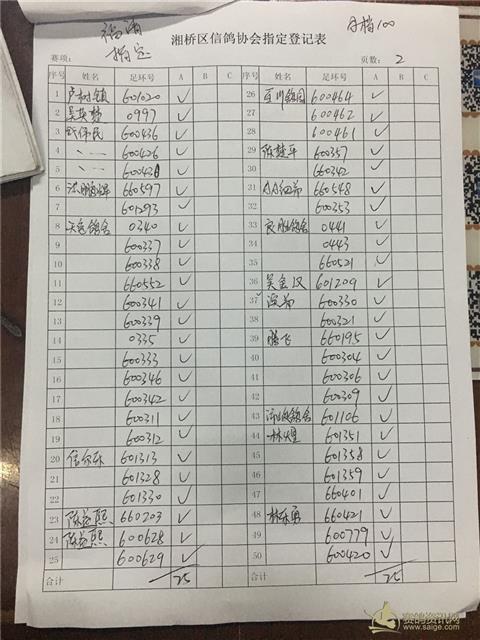 福浦
指定
各档100
湘桥区信鸽协会指定登记表
赛项: 页数: 2
序号 姓名 足环号 A B C 序号 姓名 足环号 A B C
1 601020 ✓ 26 百川鸽园 600464 ✓
2 吴英楚 0997 ✓ 27 600462 ✓
3 钱伟民 600436 ✓ 28 600461 ✓
4 600426 ✓ 29 陈楚平 600357 ✓
5 ✓ 30 660342 ✓
6 660597 ✓ 31 660548 ✓
7 601293 ✓ 32 600353 ✓
8 天容鸽舍 0340 ✓ 33 良胜鸽舍 0441 ✓
9 600337 ✓ 34 0443 ✓
10 600338 ✓ 35 660521 ✓
11 660552 ✓ 36 吴金汉 601209 ✓
12 600341 ✓ 37 600330 ✓
13 600339 ✓ 38 600321 ✓
14 0335 ✓ 39 腾飞 660195 ✓
15 600333 ✓ 40 600304 ✓
16 600346 ✓ 41 600306 ✓
17 600342 ✓ 42 600309 ✓
18 600311 ✓ 43 601106 ✓
19 600312 ✓ 44 林煌 601351 ✓
20 601313 ✓ 45 601358 ✓
21 601328 ✓ 46 601359 ✓
22 601330 ✓ 47 660401 ✓
23 陈益熙 660203 ✓ 48 林乐勇 660421 ✓
24 陈益熙 600628 ✓ 49 600779 ✓
25 600629 ✓ 50 600420 ✓
合计 25 合计 25
赛鸽资讯网
www.saige.com